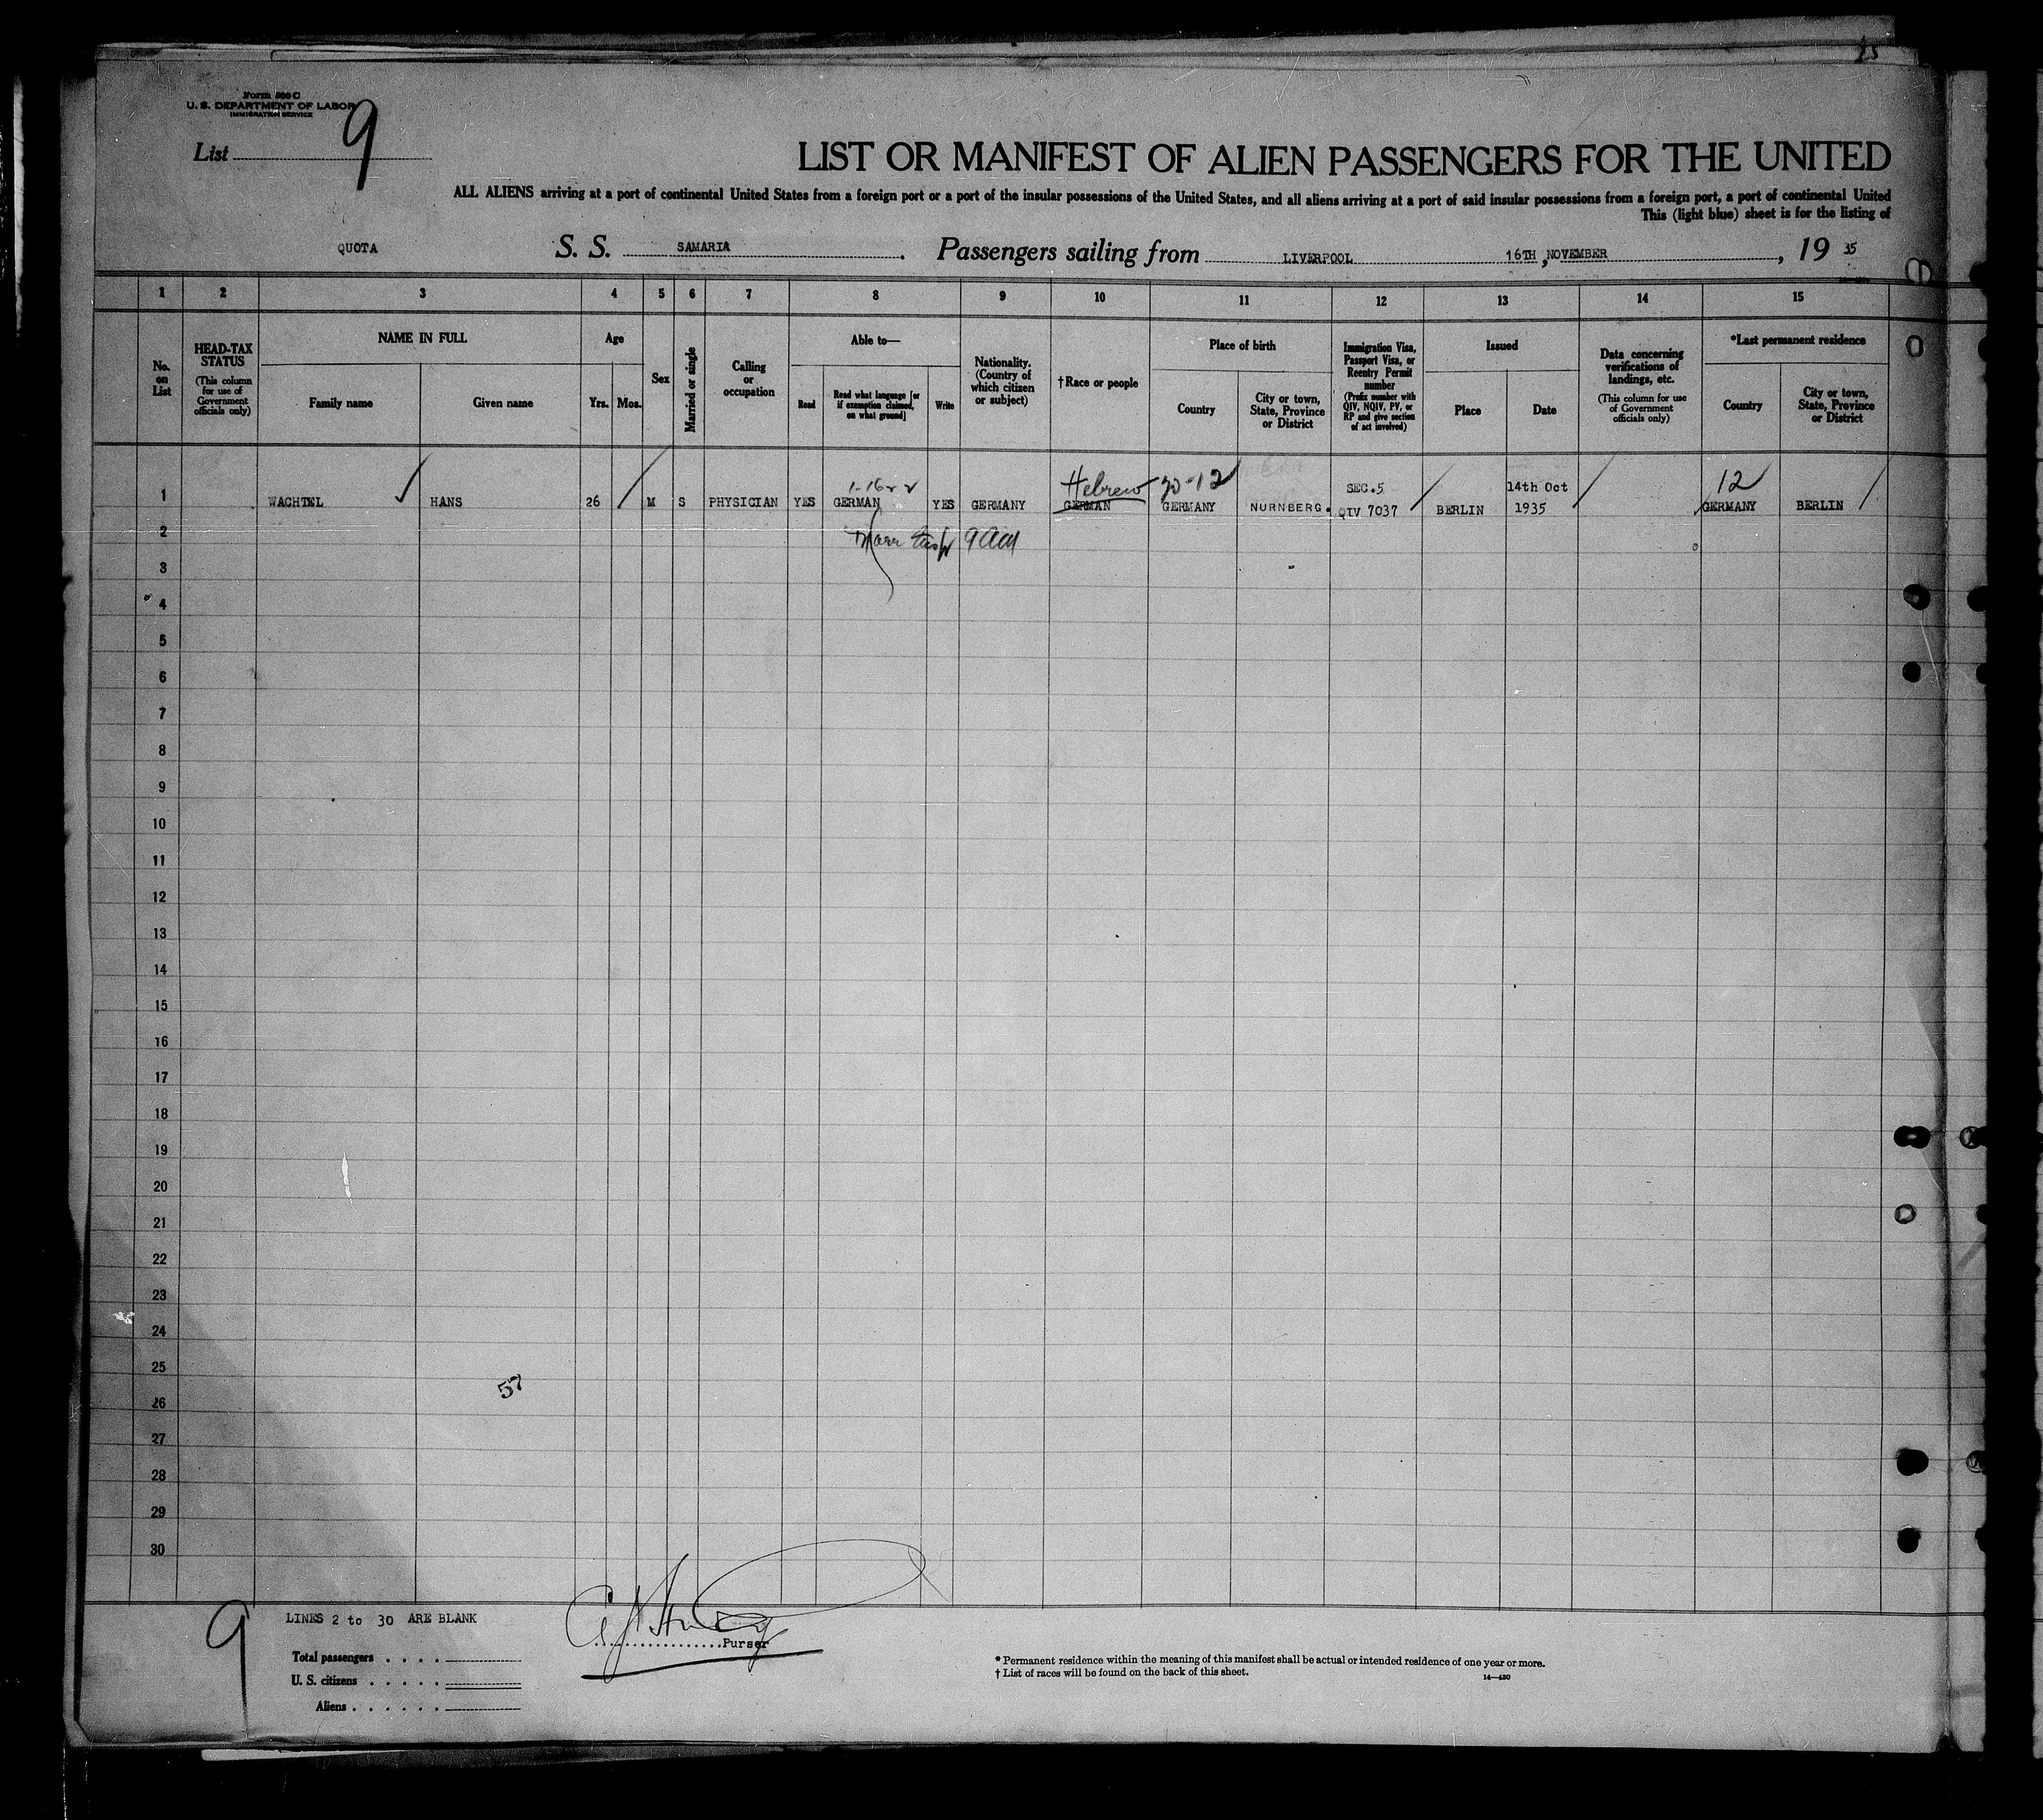 25
Form 500 C
U. S. DEPARTMENT OF LABOR
IMMIGRATION SERVICE
List 9
LIST OR MANIFEST OF ALIEN PASSENGERS FOR THE UNITED
ALL ALIENS arriving at a port of continental United States from a foreign port or a port of the insular possessions of the United States, and all aliens arriving at a port of said insular possessions from a foreign port, a port of continental United
This (light blue) sheet is for the listing of
QUOTA S. S. SAMARIA. Passengers sailing from LIVERPOOL 16TH, NOVEMBER, 19 35
1 2 3 4 5 6 7 8 9 10 11 12 13 14 15
No. on List
HEAD-TAX STATUS (This column for use of Government officials only)
NAME IN FULL
Family name
Given name
Age
Yrs. Mos.
Sex
Married or single
Calling or occupation
Able to—
Read
Read what language [or if exemption claimed, on what ground]
Write
Nationality. (Country of which citizen or subject)
†Race or people
Place of birth
Country
City or town, State, Province or District
Immigration Visa, Passport Visa, or Reentry Permit number (Prefix number with QIV, NQIV, PV, or RP and give section of act involved)
Issued
Place
Date
Data concerning verifications of landings, etc. (This column for use of Government officials only)
*Last permanent residence
Country
City or town, State, Province or District
Hebrew 12 SEC.5 14th Oct 12
1 WACHTEL HANS 26 M S PHYSICIAN YES GERMAN YES GERMANY GERMAN GERMANY NURNBERG. QIV 7037 BERLIN 1935 GERMANY BERLIN
2
3
4
5
6
7
8
9
10
11
12
13
14
15
16
17
18
19
20
21
22
23
24
25
57
26
27
28
29
30
9
LINES 2 to 30 ARE BLANK
Purser
Total passengers
U. S. citizens
Aliens
* Permanent residence within the meaning of this manifest shall be actual or intended residence of one year or more.
† List of races will be found on the back of this sheet.
14—430